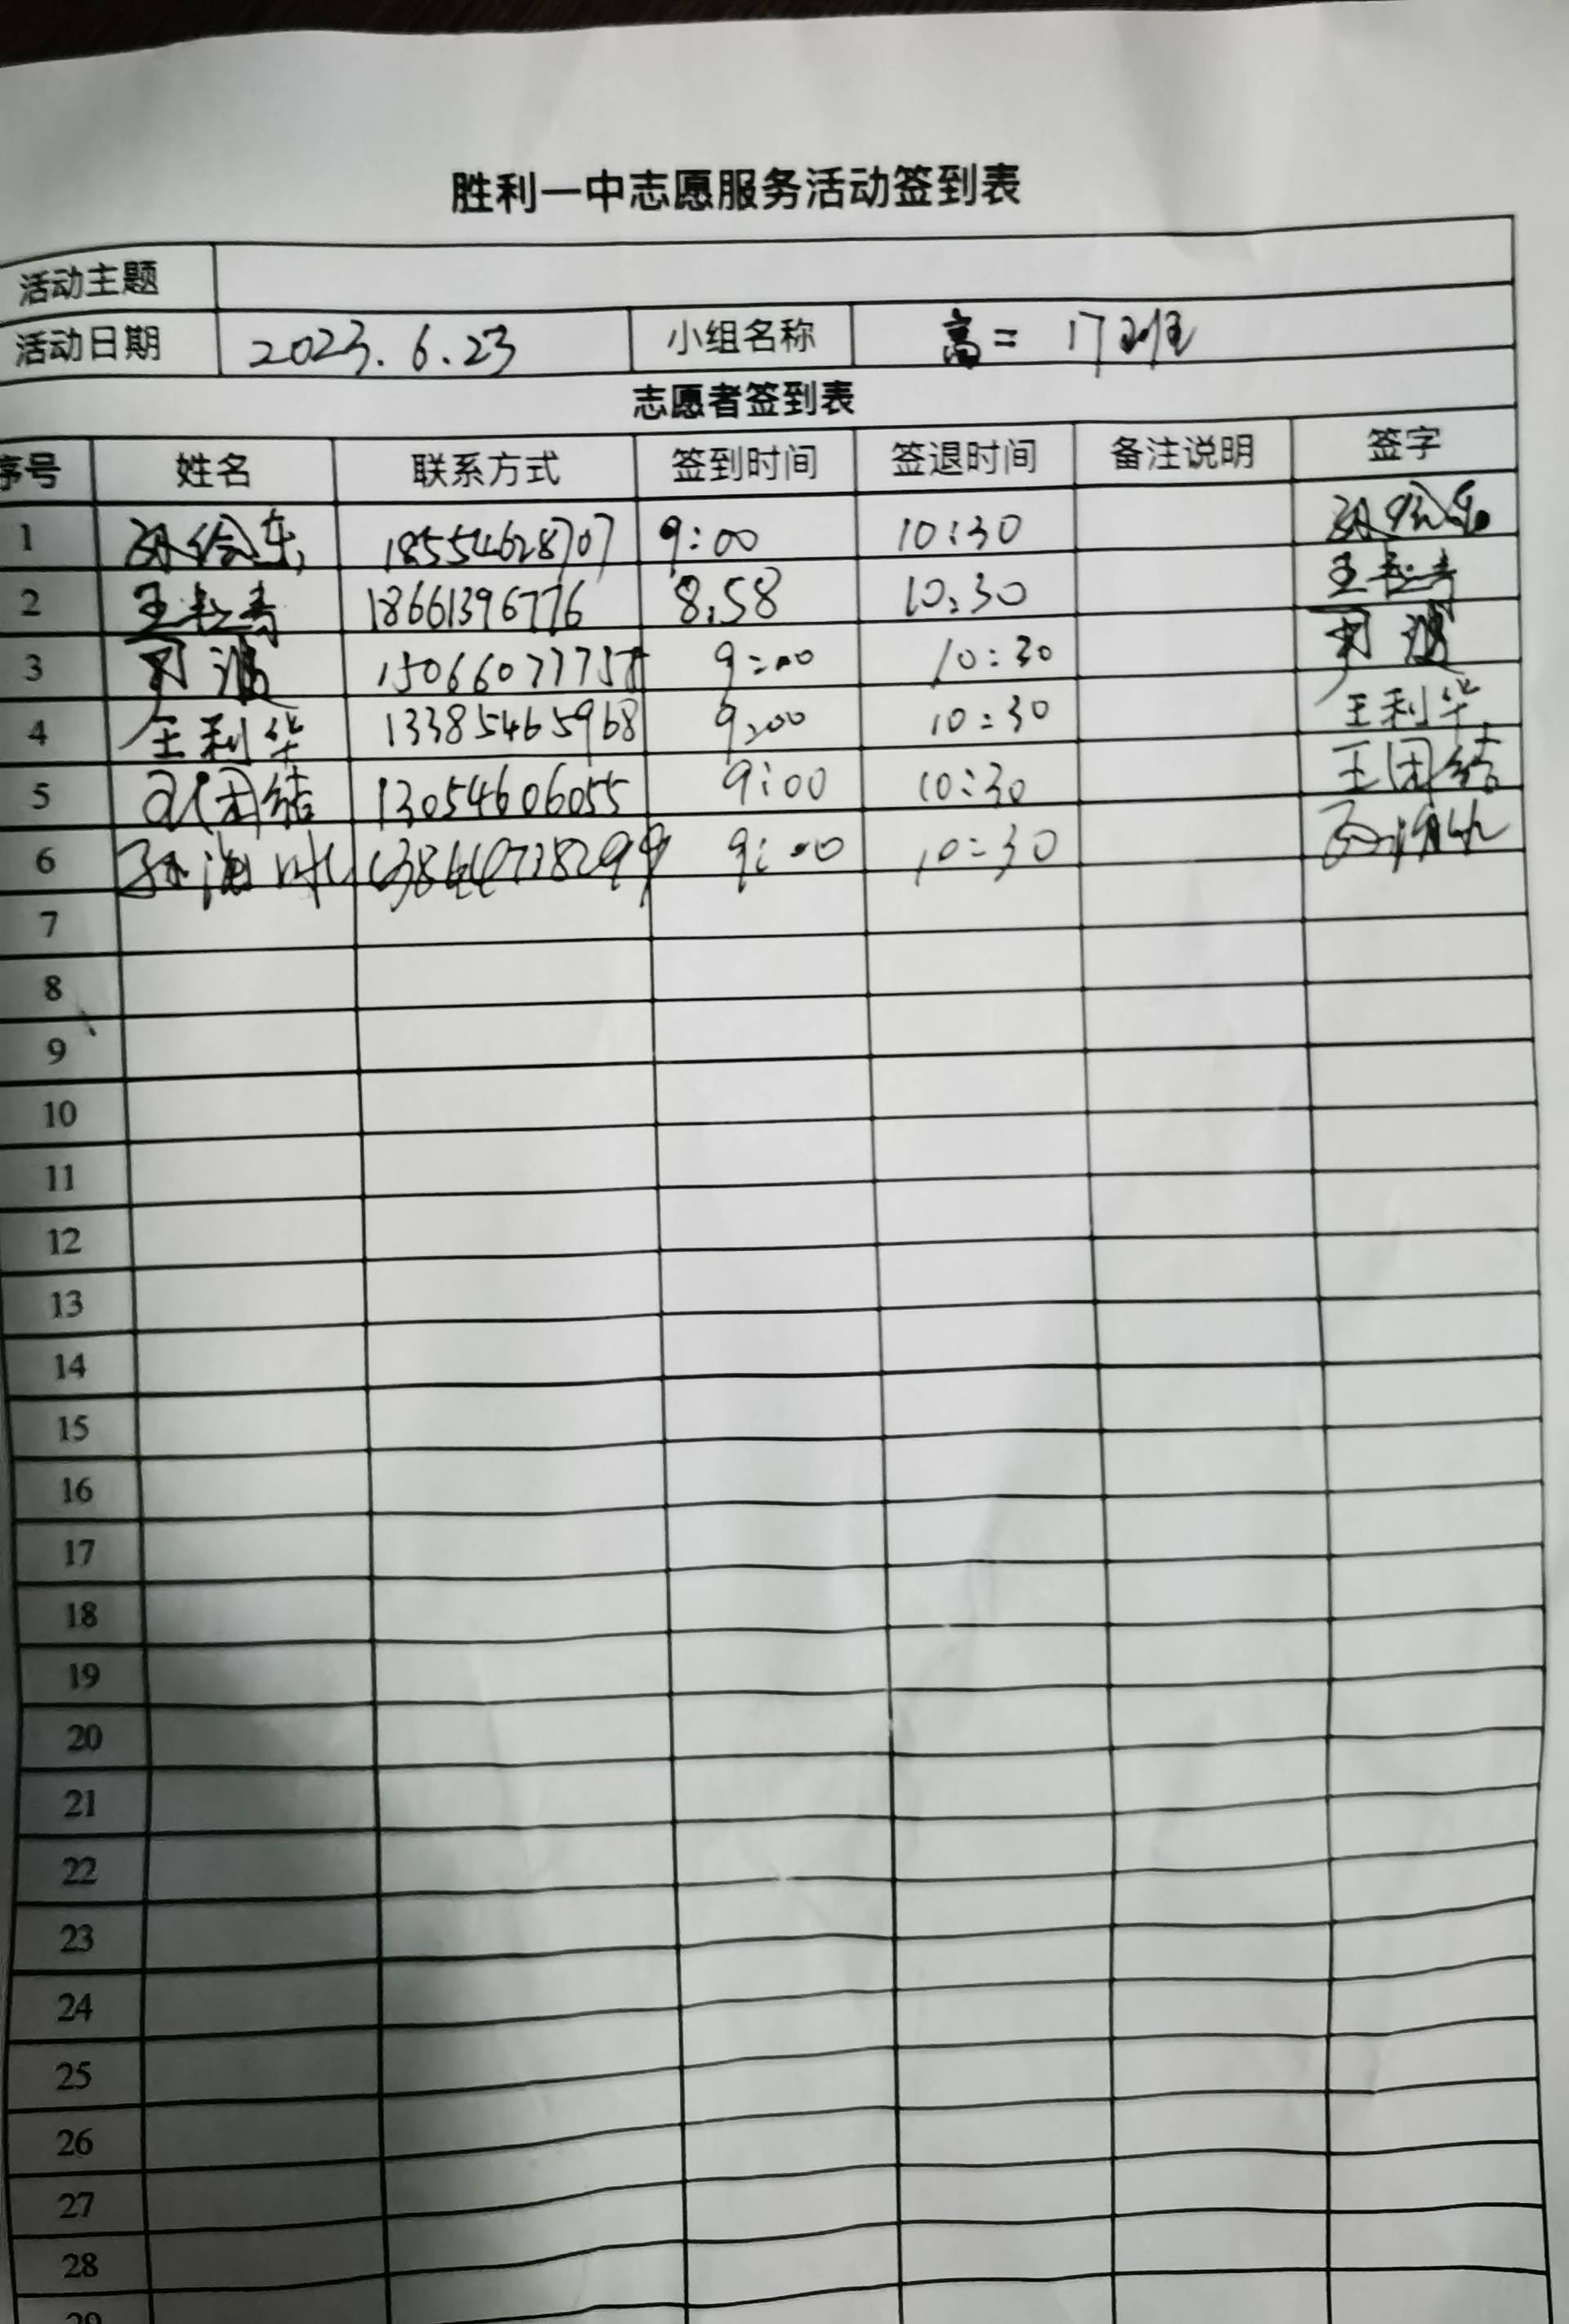 胜利一中志愿服务活动签到表
活动主题
活动日期 2023.6.23 小组名称 高二 17
志愿者签到表
序号 姓名 联系方式 签到时间 签退时间 备注说明 签字
1 18554628707 9:00 10:30
2 王 18661396776 8:58 10:30 王
3 9:00 10:30
4 王利华 13385465968 9:00 10:30 王利华
5 团结 13054606055 9:00 10:30 王团结
6 孙海 9:00 10:30
7
8
9
10
11
12
13
14
15
16
17
18
19
20
21
22
23
24
25
26
27
28
29